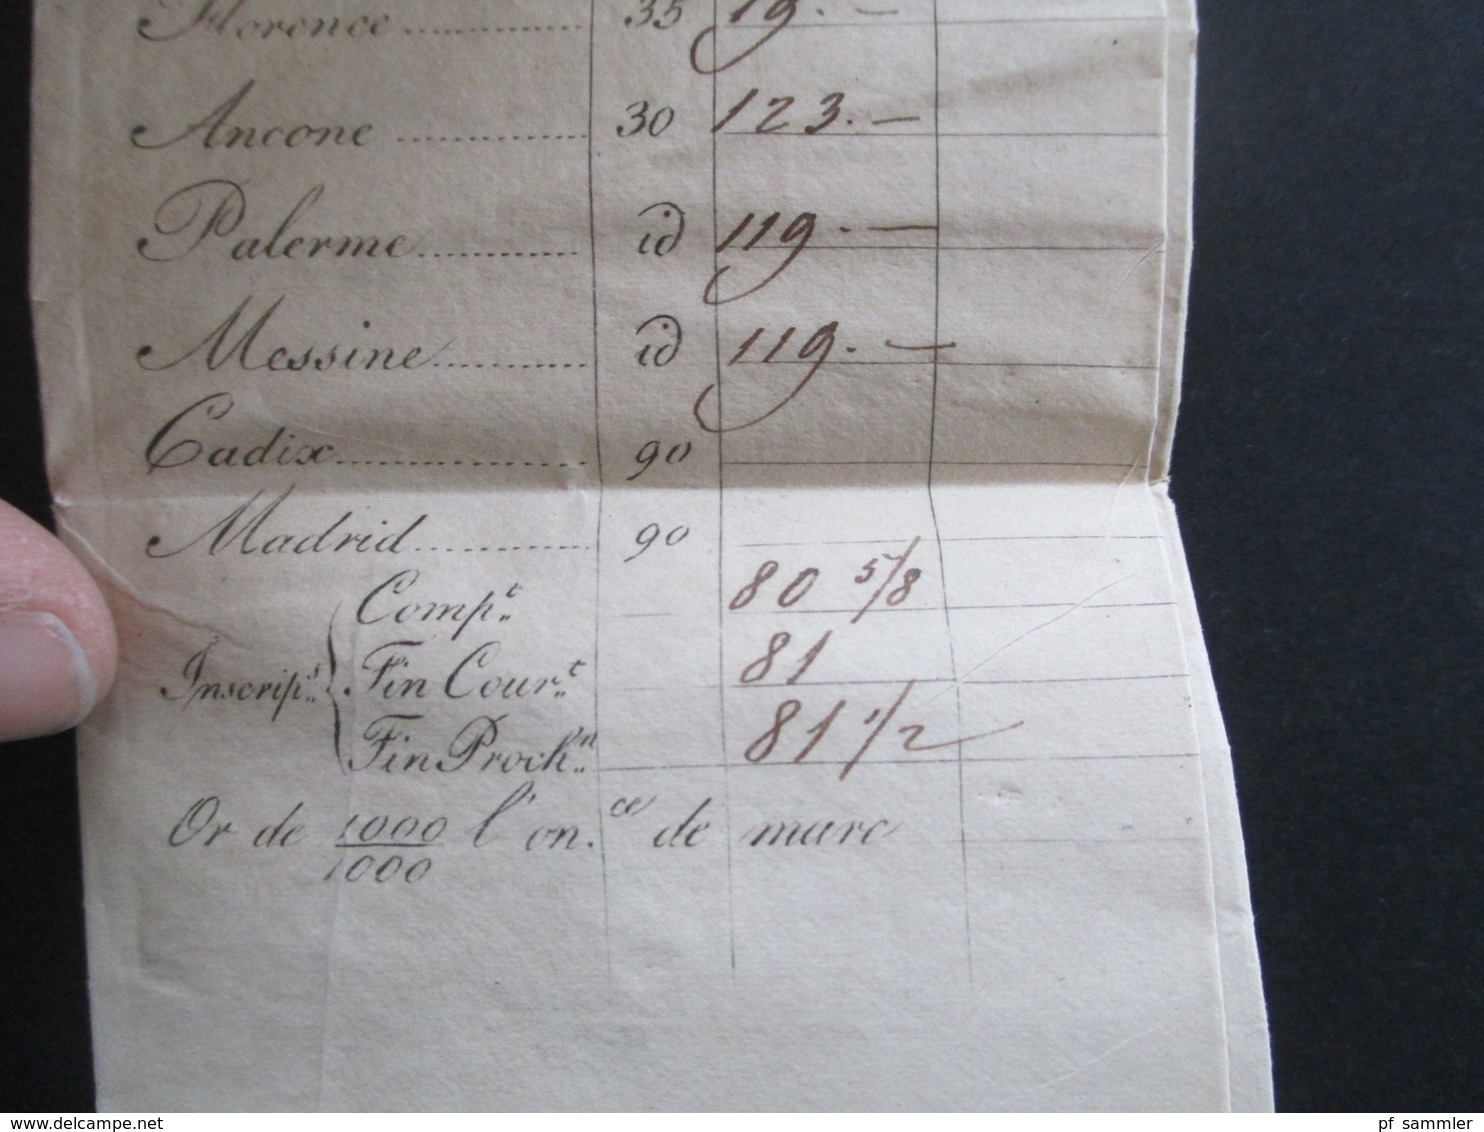 Florence .............. 35 19. —
Ancone .............. 30 123. —
Palerme .............. id 119. —
Messine .............. id 119. —
Cadix .............. 90
Madrid .............. 90
Inscrip.s { Comp.t — 80 5/8
Fin Cour.t — 81
Fin Proch.n 81 1/2
Or de 1000/1000 l'on.ce de marc
www.delcampe.net
pf_sammler